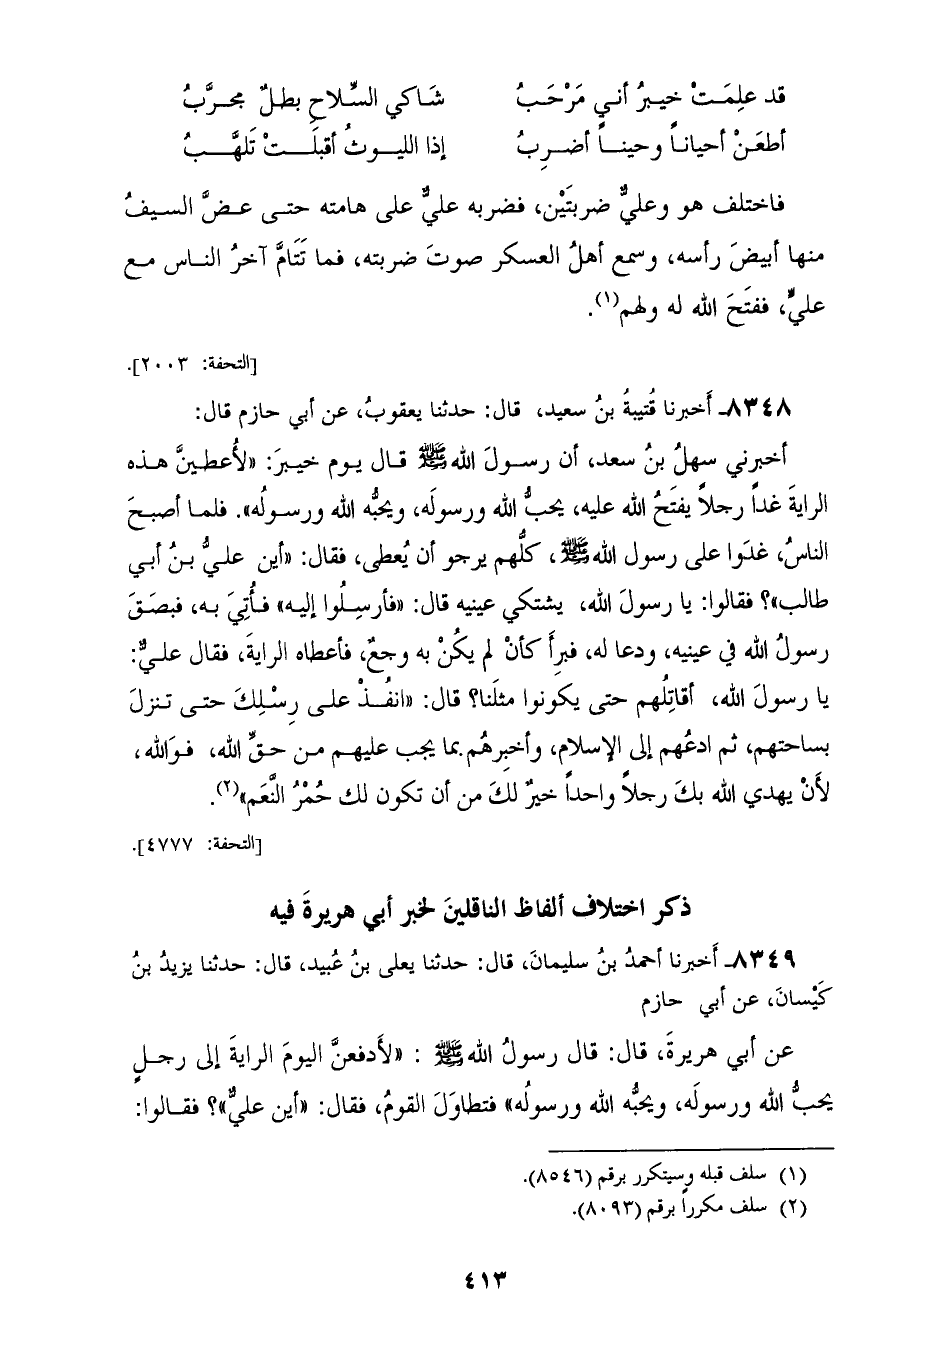 قد علِمَتْ خيبرُ أني مَرْحَبُ شَاكي السِّلاحِ بطلٌ مجرَّبُ
أطعَنْ أحياناً وحيناً أضرِبُ إذا الليوثُ أقبلَتْ تَلهَّبُ
فاختلف هو وعليٌّ ضربتَيْن، فضربه عليٌّ على هامته حتى عضَّ السيفُ
منها أبيضَ رأسه، وسمع أهلُ العسكر صوتَ ضربته، فما تَتَامَّ آخرُ الناس مع
عليٍّ، ففتَحَ الله له ولهم(١).
[التحفة: ٢٠٠٣].
٨٣٤٨ـ أَخبرنا قُتيبةُ بنُ سعيد، قال: حدثنا يعقوبُ، عن أبي حازم قال:
أخبرني سهلُ بنُ سعد، أن رسولَ الله ﷺ قال يوم خيبرَ: «لأُعطينَّ هذه
الرايةَ غداً رجلاً يفتَحُ الله عليه، يحبُّ الله ورسولَه، ويحبُّه الله ورسولُه». فلما أصبحَ
الناسُ، غدَوا على رسول الله ﷺ، كلُّهم يرجو أن يُعطى، فقال: «أين عليُّ بنُ أبي
طالب»؟ فقالوا: يا رسولَ الله، يشتكي عينيه قال: «فأرسِلُوا إليه» فأُتِيَ به، فبصَقَ
رسولُ الله في عينيه، ودعا له، فبرأَ كأنْ لم يكُنْ به وجعٌ، فأعطاه الرايةَ، فقال عليٌّ:
يا رسولَ الله، أقاتِلُهم حتى يكونوا مثلَنا؟ قال: «انفُذْ على رِسْلِكَ حتى تنزلَ
بساحتهم، ثم ادعُهم إلى الإسلام، وأخبِرهُم بما يجب عليهم من حقِّ الله، فوَالله،
لأَنْ يهدي الله بكَ رجلاً واحداً خيرٌ لكَ من أن تكون لك حُمْرُ النَّعَم»(٢).
[التحفة: ٤٧٧٧].
ذكر اختلاف ألفاظ الناقلينَ لخبر أبي هريرةَ فيه
٨٣٤٩ـ أَخبرنا أحمدُ بنُ سليمانَ، قال: حدثنا يعلى بنُ عُبيد، قال: حدثنا يزيدُ بنُ
كَيْسانَ، عن أبي حازم
عن أبي هريرةَ، قال: قال رسولُ الله ﷺ : «لأَدفعنَّ اليومَ الرايةَ إلى رجلٍ
يحبُّ الله ورسولَه، ويحبُّه الله ورسولُه» فتطاوَلَ القومُ، فقال: «أين عليٌّ»؟ فقالوا:
(١) سلف قبله وسيتكرر برقم (٨٥٤٦).
(٢) سلف مكرراً برقم (٨٠٩٣).
٤١٣